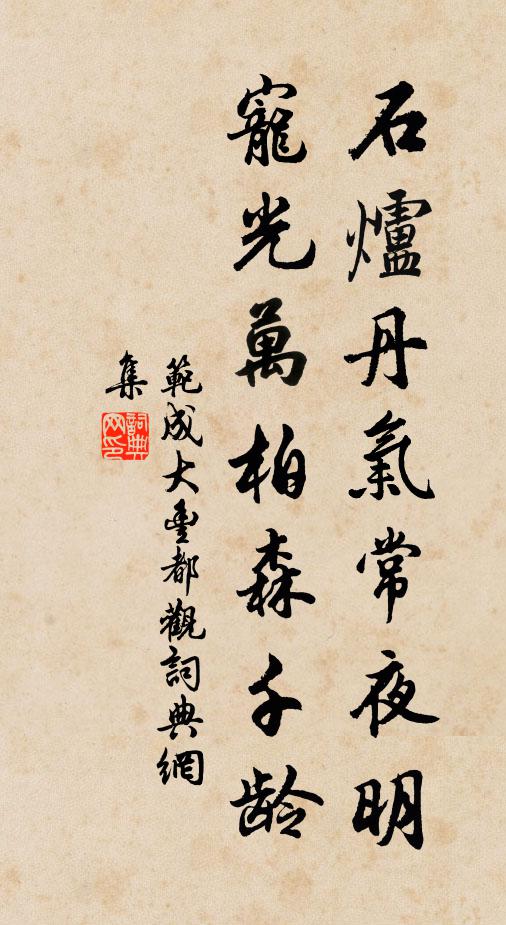 石爐丹氣常夜明
寵光萬柏森千龄
範成大豊都觀詞典網
集
詞典网印